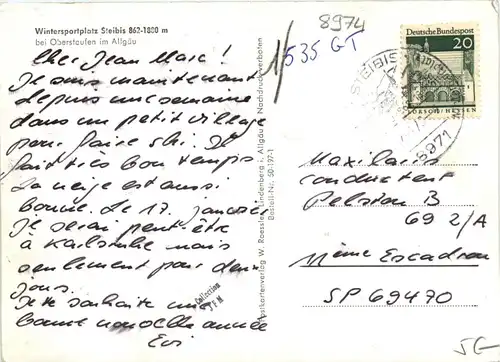 Wintersportplatz Steibis 862-1800 m
bei Oberstaufen im Allgäu
Cher Jean Marc !
Je suis maintenant
depuis une semaine
dans un petit village
pour faire ski. Il
fait très bon temps
La neige est aussi
bonne. Le 17. janvier
Je serai peut-être
à Karlsruhe mais
seulement pour deux
jours.
Je te souhaite une
bonne nouvelle année
Evi
Collection
J F M
Postkartenverlag W. Roessler, Lindenberg i. Allgäu · Nachdruck verboten
Bestell-Nr. 50-197-1
8974
535 GT
Deutsche Bundespost
20
LORSCH/HESSEN
STEIBIS
8971
Maxilaris
conductent
Peloton B
69 2/A
11ème Escadron
SP 69470
5G